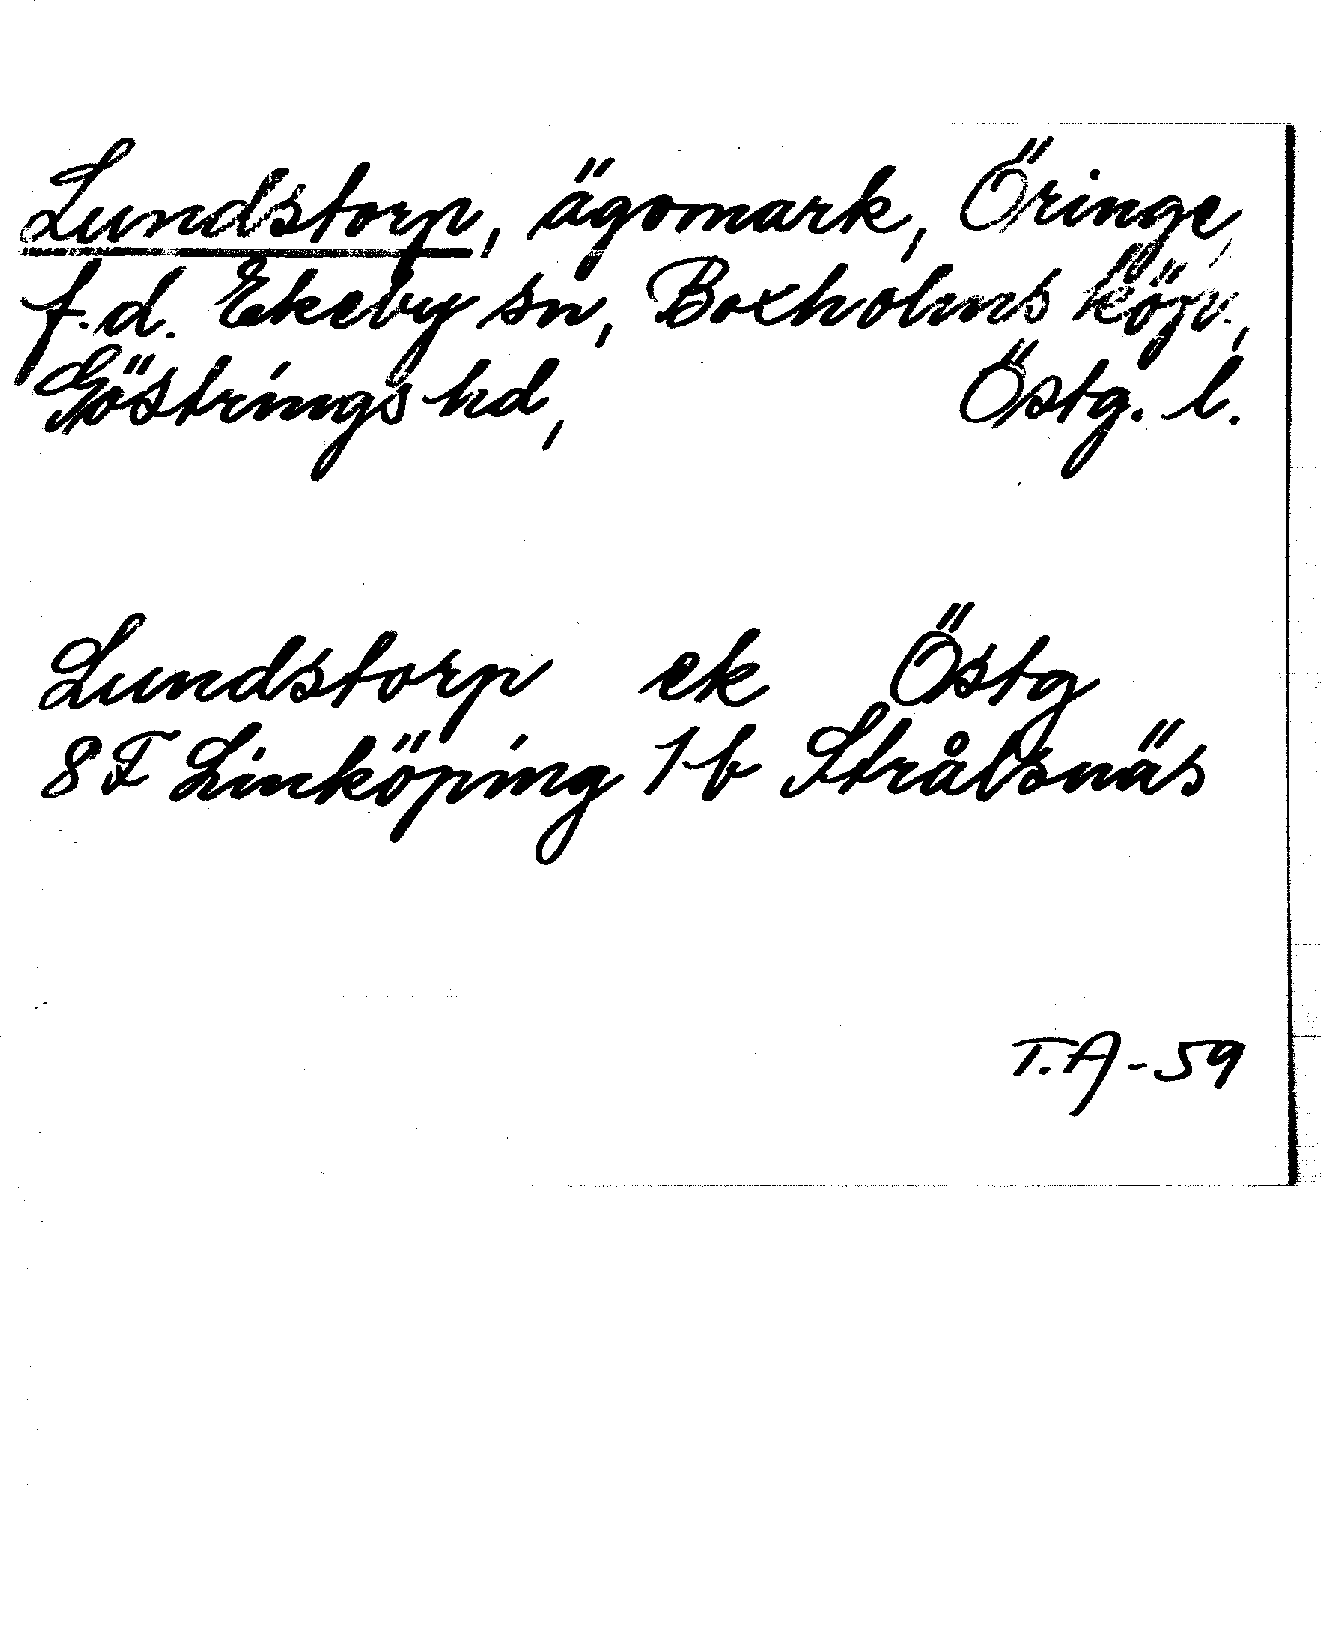 Lundstorp, ägomark, Öringe,
f.d. Ekeby sn, Boxholms köp.,
Göstrings hd, Östg. l.
Lundstorp ek Östg
8F Linköping 1b Strålsnäs
T.A-59